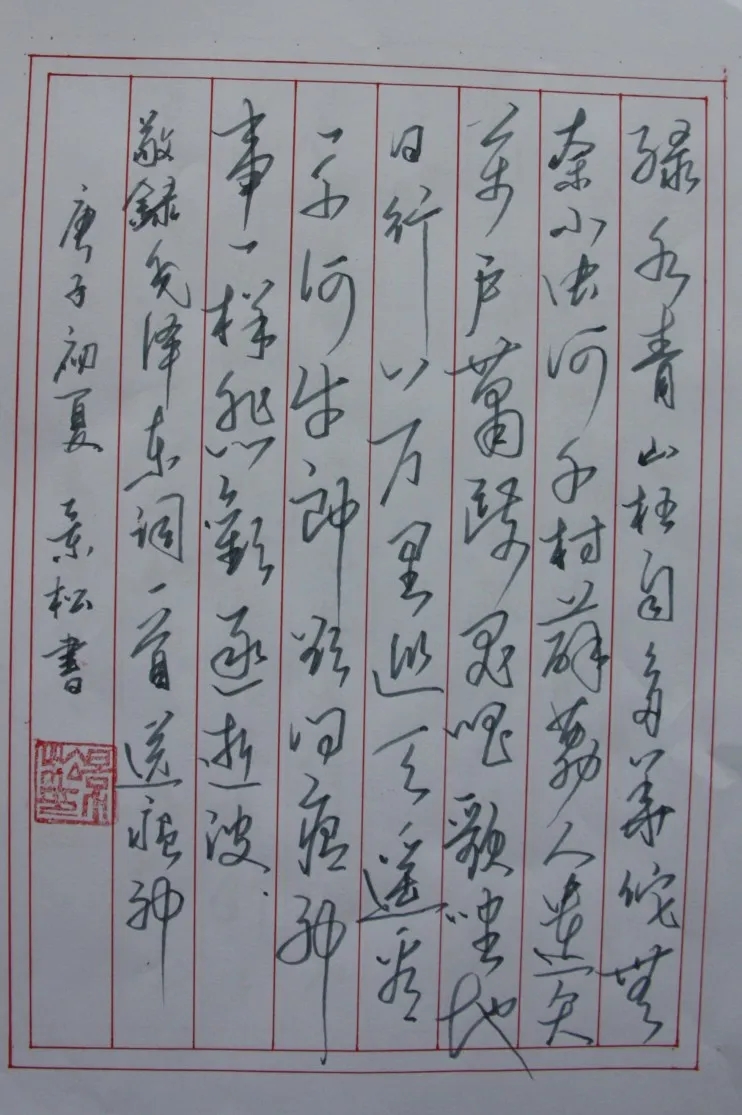 绿水青山枉自多華佗無
奈小虫何千村薜荔人遗矢
萬户蕭疏鬼唱歌坐地
日行八万里巡天遥看
一千河牛郎欲问瘟神
事一样悲歡逐逝波
敬録毛泽东词一首送瘟神
庚子初夏 景松書